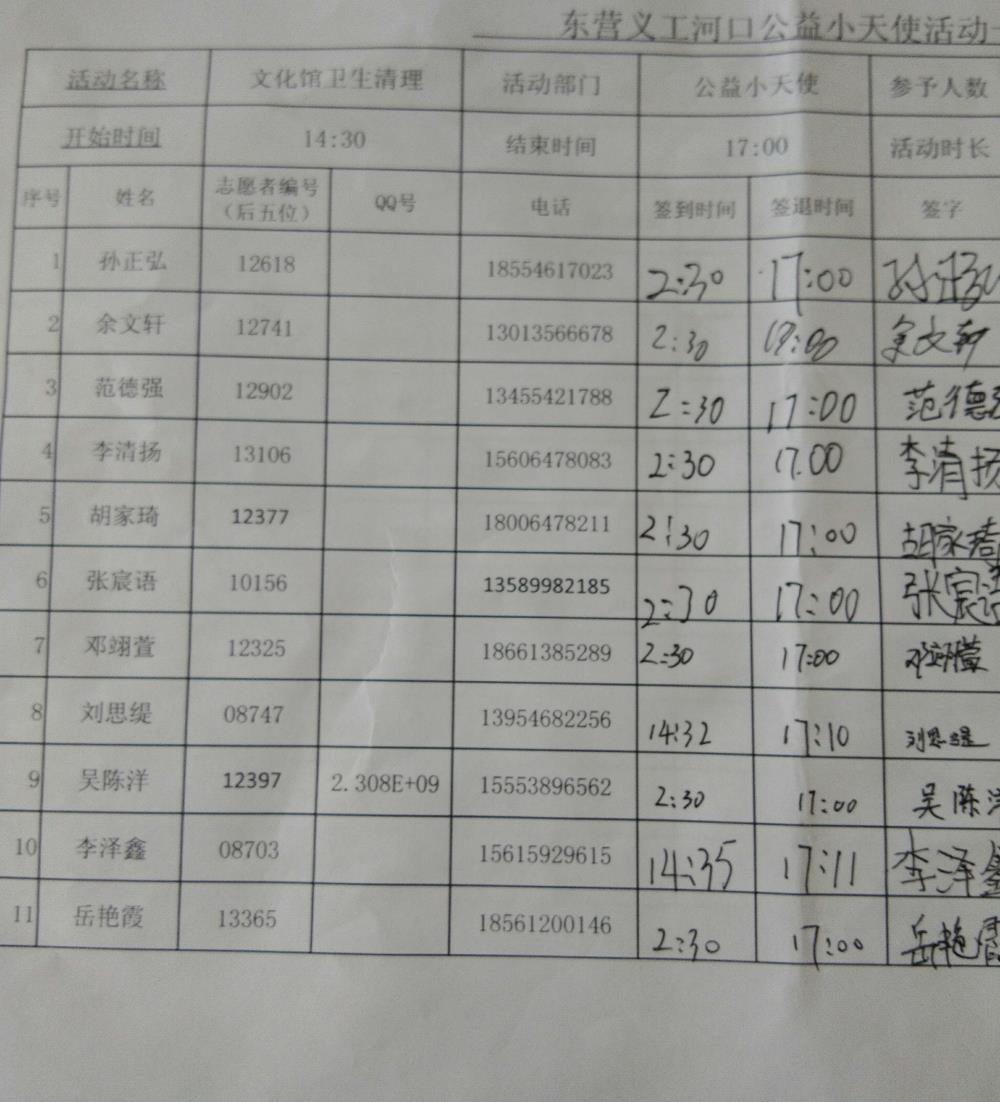 东营义工河口公益小天使活动
活动名称 文化馆卫生清理 活动部门 公益小天使 参予人数
开始时间 14:30 结束时间 17:00 活动时长
序号 姓名 志愿者编号（后五位） QQ号 电话 签到时间 签退时间 签字
1 孙正弘 12618 18554617023 2:30 17:00 孙正弘
2 余文轩 12741 13013566678 2:30 余文轩
3 范德强 12902 13455421788 2:30 17:00 范德强
4 李清扬 13106 15606478083 2:30 17.00 李清扬
5 胡家琦 12377 18006478211 2:30 17:00 胡家琦
6 张宸语 10156 13589982185 2:30 17:00 张宸语
7 邓翊萱 12325 18661385289 2:30 17:00 邓翊萱
8 刘思缇 08747 13954682256 14:32 17:10 刘思缇
9 吴陈洋 12397 2.308E+09 15553896562 2:30 17:00 吴陈洋
10 李泽鑫 08703 15615929615 14:35 17:11 李泽鑫
11 岳艳霞 13365 18561200146 2:30 17:00 岳艳霞